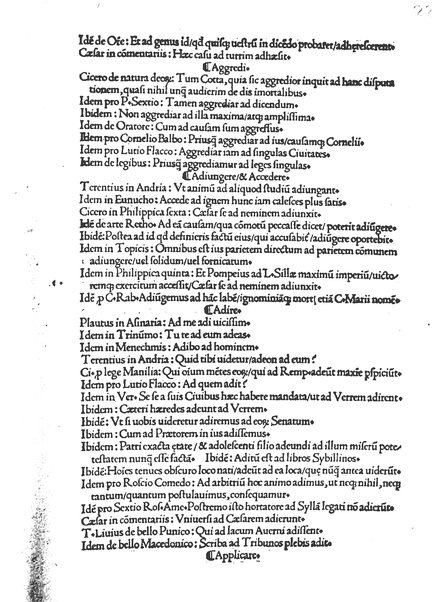 Idē de Ořе: Et ad genus id/qđ quisq; uestrũ in dicēdo probaret/adhęrescerent.
Cæsar in cōmentariis: Hæc casu ad turrim adhæsit.
⸿Aggredi.
Cicero de natura deoꝝ: Tum Cotta, quia sic aggredior inquit ad hanc disputa
tionem, quasi nihil unq̃ audierim de dis imortalibus.
Idem pro P. Sextio: Tamen aggrediar ad dicendum.
Ibidem: Non aggrediar ad illa maxima/atq; amplissima.
Idem de Oratore: Cum ad causam sum aggressus.
Idem pro Cornelio Balbo: Priusq̃ aggrediar ad ius/causamq; Cornelii.
Idem pro Lutio Flacco: Aggrediar iam ad singulas Ciuitates.
Idem de legibus: Priusq̃ aggrediamur ad leges singulas.
⸿Adiungere/& Accedere.
Terentius in Andria: Vt animũ ad aliquod studiũ adiungant.
Idem in Eunucho: Accede ad ignem hunc iam calesces plus satis.
Cicero in Philippica sexta: Cæsar se ad neminem adiunxit.
Idē de arte Retho. Ad eā causam/qua cōmotũ peccasse dicet/poterit adiũgere.
Ibidē: Postea ad id qđ definieris factũ eius/qui accusabiť/adiũgere oportebit.
Idem in Topicis: Omnibus est ius parietem directum ad parietem cōmunem
adiungere/uel solidum/uel fornicatum.
Idem in Philippica quinta: Et Pompeius ad L. Sillæ maximũ imperiũ/uicto
remq; exercitum accessit/Cæsar se ad neminem adiunxit.
Idē ꝓ C. Rab. Adiũgemus ad hāc labē/ignominiāq; mortę etiā C. Marii nomē.
⸿Adire.
Plautus in Asinaria: Ad me adi uicissim.
Idem in Trinũmo: Tu te ad eum adeas.
Idem in Menechmis: Adibo ad hominem.
Terentius in Andria: Quid tibi uidetur/adeon ad eum?
Ci. ꝓ lege Manilia: Qui oĩum mētes eoꝝ/qui ad Remp. adeũt maxĩe ꝑspiciũt.
Idem pro Lutio Flacco: Ad quem adit?
Idem in Ver. Se se a suis Ciuibus hæc habere mandata/ut ad Verrem adirent.
Ibidem: Cæteri hæredes adeunt ad Verrem.
Ibidē: Vt si uobis uideretur adiremus ad eoꝝ Senatum.
Ibidem: Cum ad Prætorem in ius adissemus.
Ibidem: Patri exacta ętate/& adolescenti filio adeundi ad illum miserũ pote
testatem nunq̃ esse factā. Ibidē: Aditũ est ad libros Sybillinos.
Ibidē: Hoĩes tenues obscuro loco nati/adeũt ad ea loca/quę nũq̃ antea uiderũt.
Idem pro Roscio Comedo: Ad arbitriũ hoc animo adimus, ut neq; nihil, neq;
tantum/quantum postulauimus, consequamur.
Idē pro Sextio Ros. Ame. Postremo isto hortatore ad Syllā legati nō adierũt.
Cæsar in cōmentariis: Vniuersi ad Cæsarem adierunt.
T. Liuius de bello Punico: Qui ad lacum Auerni adissent.
Idem de bello Macedonico: Scriba ad Tribunos plebis adit.
⸿Applicare.